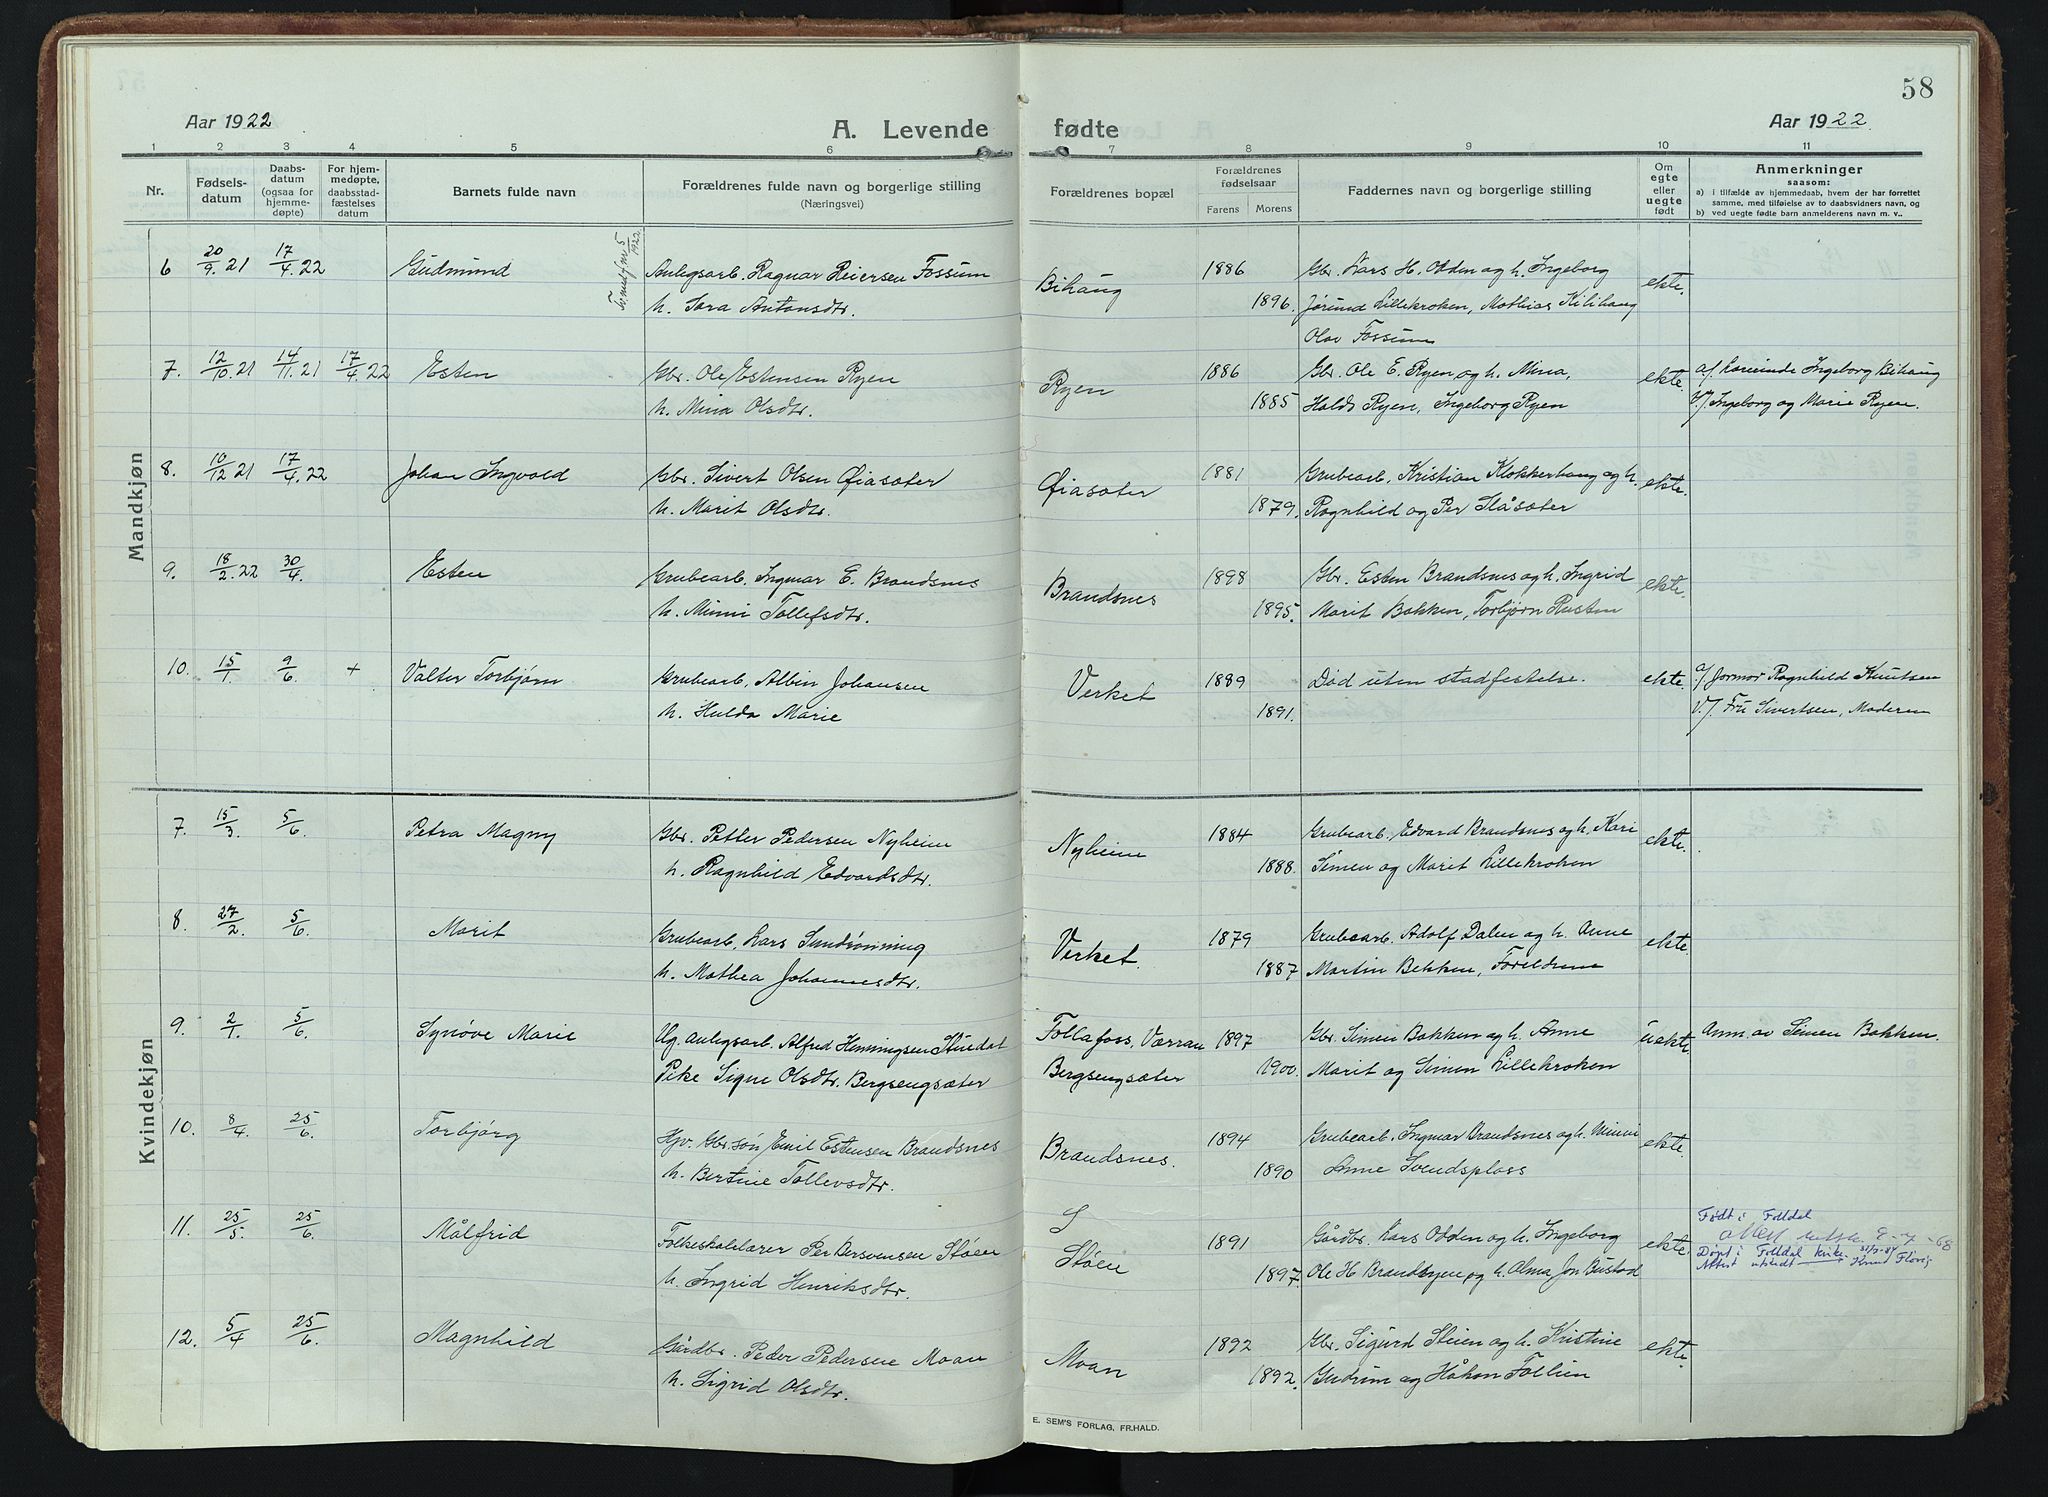 58
Aar 1922
A. Levende fødte
Aar 1922.
1 2 3 4 5 6 7 8 9 10 11
Nr.
Fødsels-
datum
Daabs-
datum
(ogsaa for
hjemme-
døpte)
For hjem-
medøpte,
daabsstad-
fæstelses
datum
Barnets fulde navn
Forældrenes fulde navn og borgerlige stilling
(Næringsvei)
Forældrenes bopæl
Forældrenes
fødselsaar
Farens Morens
Faddernes navn og borgerlige stilling
Om
egte
eller
uegte
født
Anmerkninger
saasom:
a) i tilfælde av hjemmedaab, hvem der har forrettet
samme, med tilføielse av to daabsvidners navn, og
b) ved uegte fødte barn anmelderens navn m. v..
Mandkjøn
6 20/9.21 17/4.22 Gudmund Anlegsarb. Ragnar Reiersen Fossum Bihaug 1886 Gbr. Lars H. Odden og h. Ingeborg ekte.
h. Sara Antonsdtr. 1896. Jørund Lillekroken, Mathias Kilihaug
Olav Fossum
7. 12/10.21 14/11.21 17/4.22 Esten Gbr. Ole Estensen Ryen Ryen 1886 Gbr. Ole E. Ryen og h. Mina, ekte. a/ Ingeborg Bihaug
h. Mina Olsdtr. 1885 Haldo Ryen, Ingeborg Ryen V./ Ingeborg og Marie Ryen.
8. 10/12 21 17/4.22 Johan Ingvald Gbr. Sivert Olsen Øiasæter Øiasæter 1881 Grubearb. Kristian Klokkerhaug og h. ekte.
h. Marit Olsdtr. 1879. Ragnhild og Per Slåsæter
9. 18/2.22 30/4. Esten Grubearb. Ingmar E. Brandsnes Brandsnes 1898 Gbr. Esten Brandsnes og h. Ingrid ekte.
h. Mimi Tollefsdtr. 1895. Marit Bakken, Torbjørn Rusten
10. 15/1. 9/6. + Valter Torbjørn Grubearb. Albin Johansen Verket 1889 Død uten stadfestelse. ekte. a/ Jormor Ragnhild Knutsen
h. Hulda Marie 1891. V./ Fru Sivertsen, Moderen
Kvindekjøn
7. 15/3. 5/6. Petra Magny Gbr. Petter Pedersen Nyheim Nyheim 1884 Grubearb. Edvard Brandsnes og h. Kari ekte.
h. Ragnhild Edvardsdtr. 1888. Simen og Marit Lillekroken
8. 27/2. 5/6. Marit Grubearb. Lars Sundrønning Verket. 1879 Grubearb. Adolf Dalen og h. Anne ekte.
h. Mathea Johannesdtr. 1887 Martin Bekken, Foreldrene
9. 2/1. 5/6. Synøve Marie Ug. Anlegsarb. Alfred Henningsen Follafoss, Værran 1897 Gbr. Simen Bakken og h. Anne uekte. Anm. av Simen Bakken.
Pike Signe Olsdtr. Bergsengsæter Bergsengsæter 1900. Marit og Simen Lillekroken
10. 8/4. 25/6. Torbjørg Hjv. Gbr.søn Emil Estensen Brandsnes Brandsnes. 1894 Grubearb. Ingmar Brandsnes og h. Mimi ekte.
h. Bertine Tollevsdtr. 1890 Anne Svendsplass
11. 25/5. 25/6. Målfrid Folkeskolelærer Per Bersvensen Støen S Støen 1891 Gårdbr. Lars Odden og h. Ingeborg ekte. Født i Folldal
h. Ingrid Henriksdtr. 1897. Ole H. Brandsyen og h. Olma, Jon Bustad Døpt i Folldal kirke.
Attest utstedt
12. 5/4 25/6. Magnhild Gårdbr. Peder Pedersen Moan Moan 1892 Gbr. Sigurd Steien og h. Kristine ekte.
h. Sigrid Olsdtr. 1892. Gudrun og Håkon Follien
E. SEM'S FORLAG, FR.HALD.